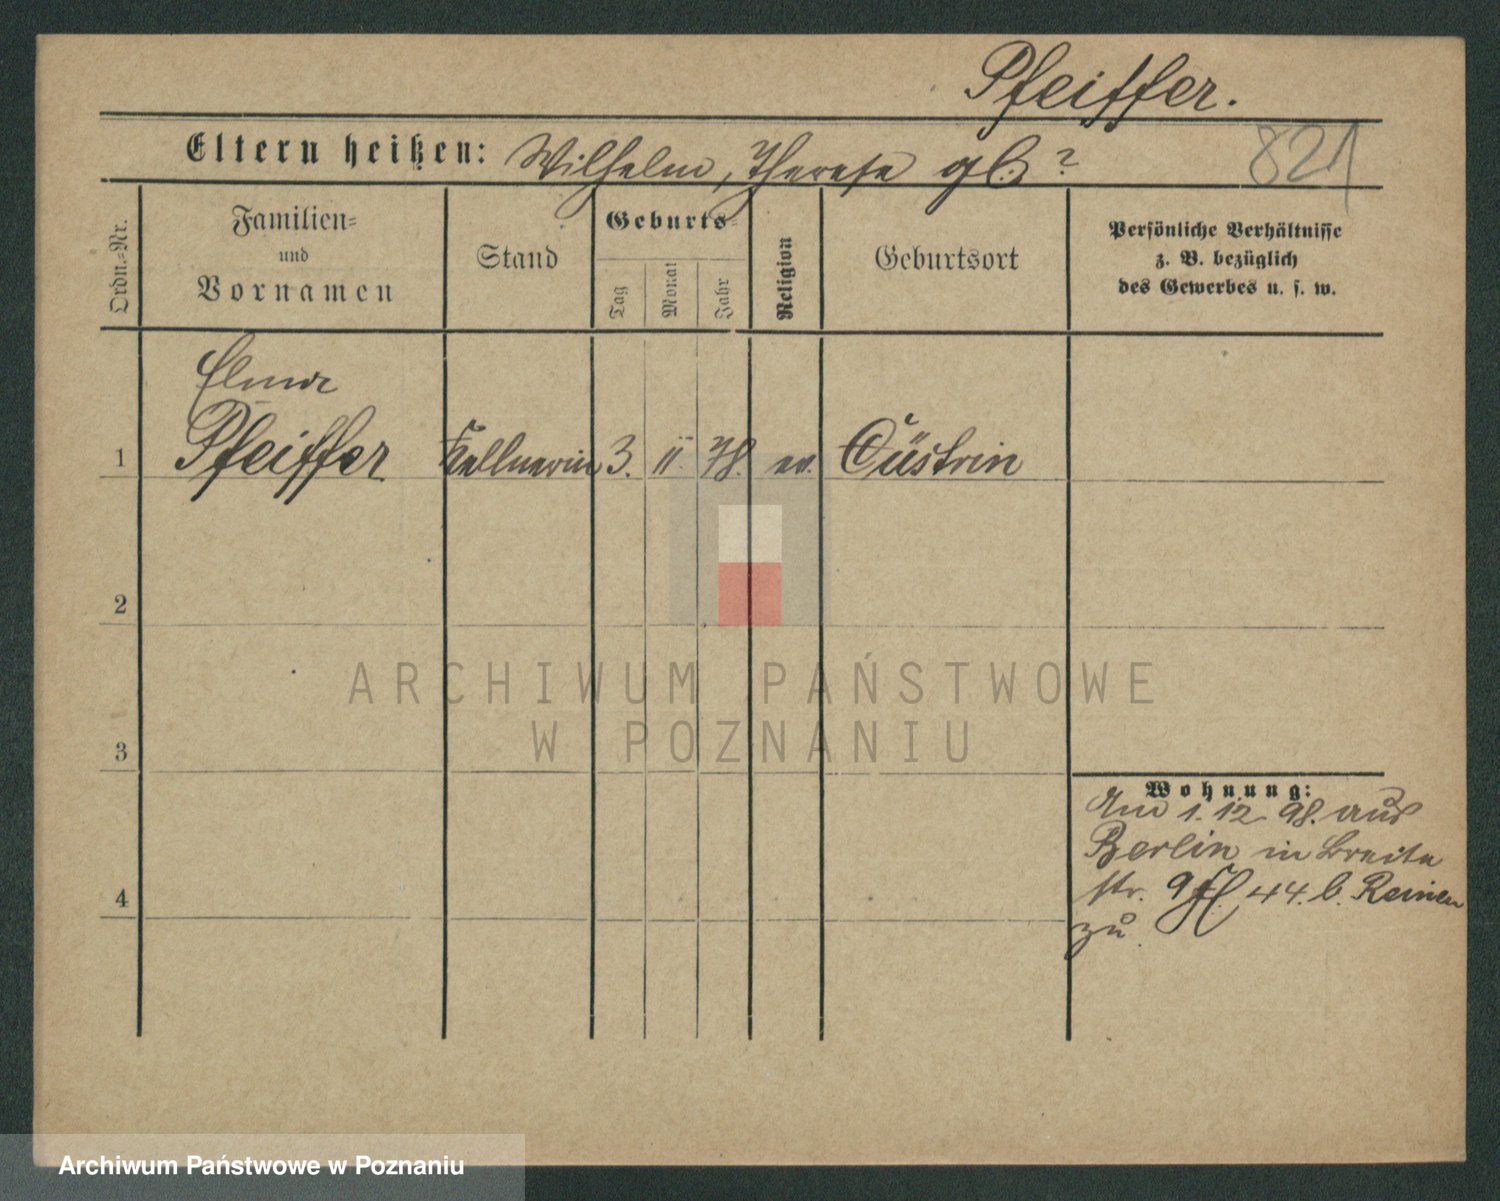 Pfeiffer.
821
Eltern heißen: Wilhelm, Therese gb. ?
Ordn.-Nr.
Familien-
und
Vornamen
Stand
Geburts-
Tag
Monat
Jahr
Religion
Geburtsort
Persönliche Verhältnisse
z. B. bezüglich
des Gewerbes u. s. w.
1
Pfeiffer Kellnerin 3. II. 78. ev. Cüstrin
2
3
4
Wohnung:
Am 1.12.98. aus
Berlin in Breite
str. 9 44. b.
zu
ARCHIWUM PAŃSTWOWE
W POZNANIU
Archiwum Państwowe w Poznaniu